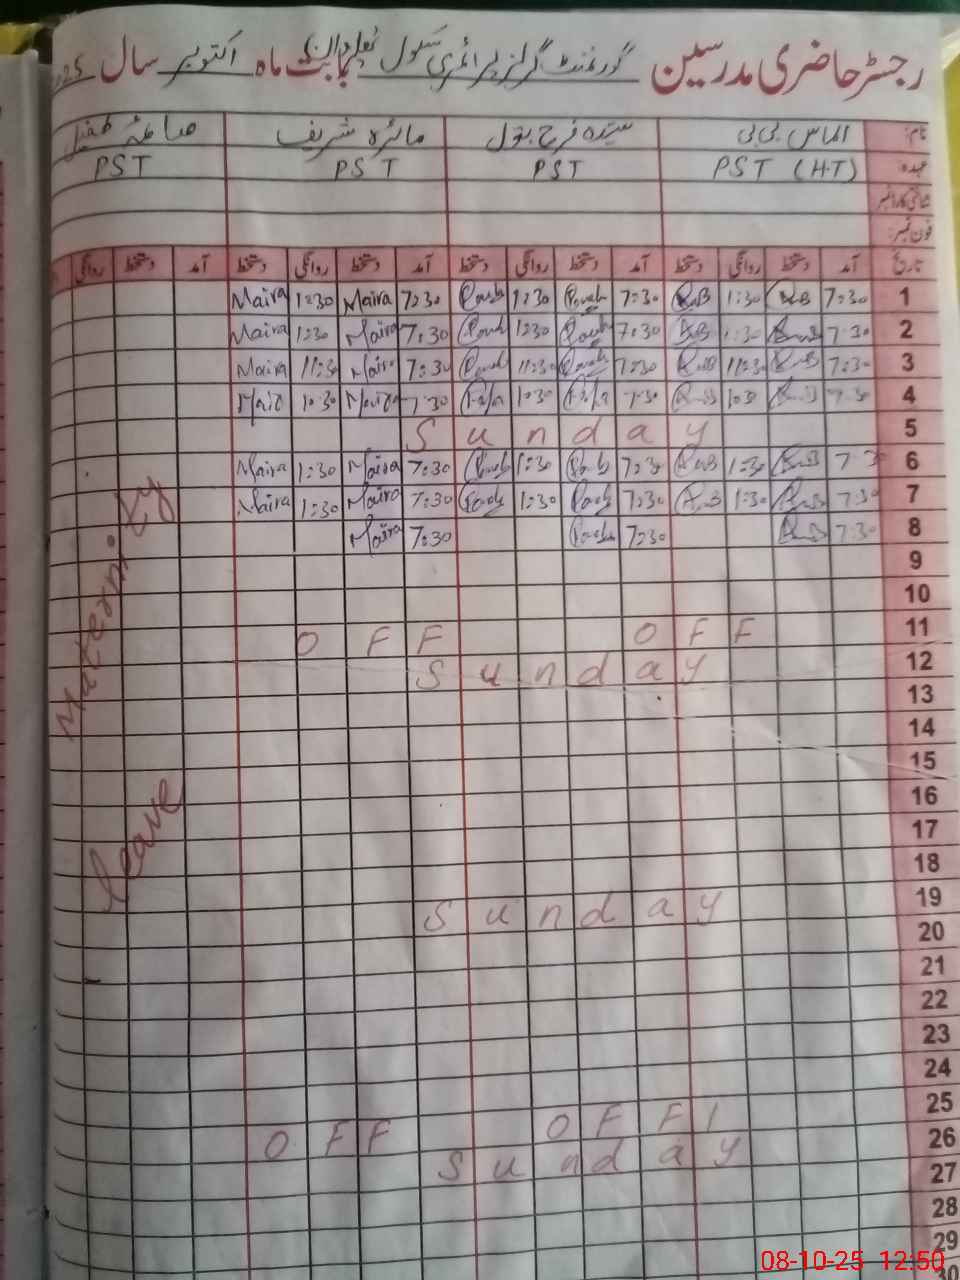 رجسٹر حاضری مدرسین گورنمنٹ گرلز پرائمری سکول بابت ماہ اکتوبر سال 25
نام: الماس بی بی سیدہ فرح بتول مائرہ شریف صائمہ طفیل
عہدہ PST (H.T) PST PST PST
شناختی کارڈ نمبر
فون نمبر:
تاریخ آمد دستخط روانگی دستخط آمد دستخط روانگی دستخط آمد دستخط روانگی دستخط آمد دستخط روانگی
1 7:30 1:30 7:30 1:30 7:30 Maira 1:30 Maira
2 7:30 1:30 7:30 1:30 7:30 Maira 1:30 Maira
3 7:30 11:30 7:30 11:30 7:30 Maira 11:30 Maira
4 7:30 10:30 7:30 10:30 7:30 Maira 10:30 Maira
5 Sunday
6 7:30 1:30 7:30 1:30 7:30 Maira 1:30 Maira
7 7:30 1:30 7:30 1:30 7:30 Maira 1:30 Maira
8 7:30 7:30 7:30 Maira
9
10
11 OFF OFF
12 Sunday
13
14
15
16
17
18
19 Sunday
20
21
22
23
24
25 OFF OFF
26 Sunday
27
28
29
30
Maternity
leave
08-10-25 12:50